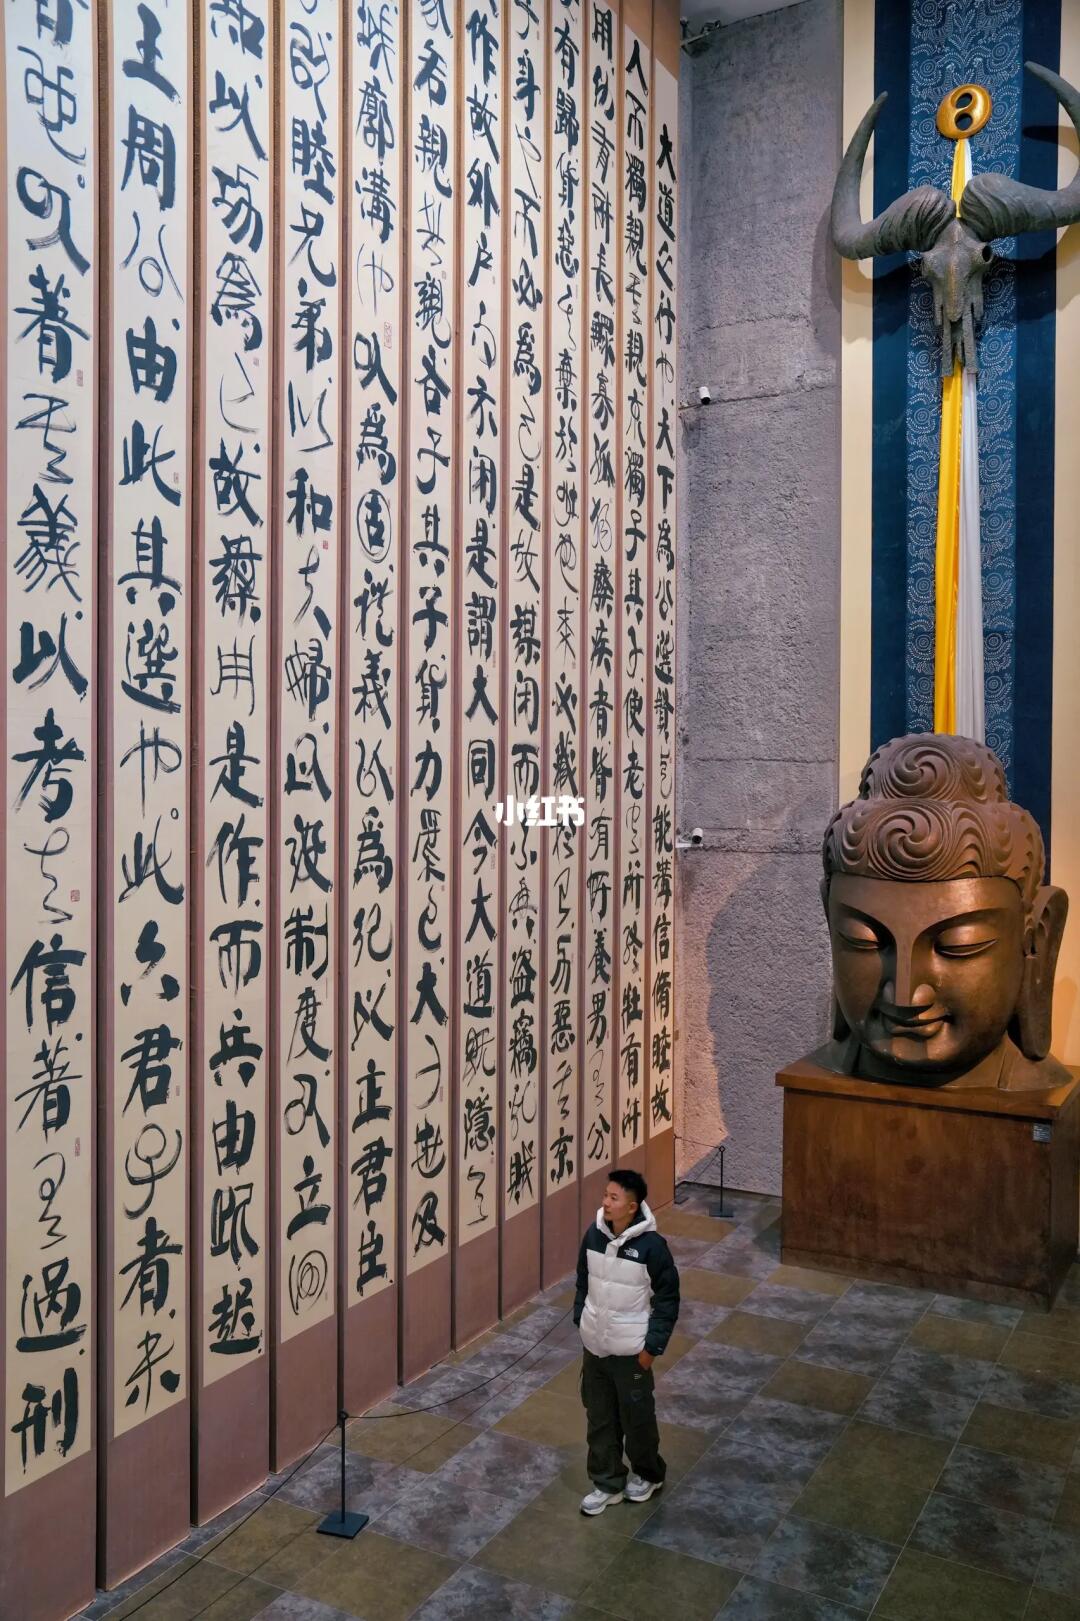 大道之行也天下為公選賢與能講信脩睦故
人不獨親其親不獨子其子使老有所終壯有所
用幼有所長鰥寡孤獨廢疾者皆有所養男有分
有歸貨惡其棄於地也不必藏於己力惡其不
於身也不必為己是故謀閉而不興盜竊亂賊
作故外户而不閉是謂大同今大道既隱天
家各親其親各子其子貨力為己大人世及
城郭溝池以為固禮義以為紀以正君臣
子以睦兄弟以和夫婦以設制度以立田
知以功為己故謀用是作而兵由此起
王周公由此其選也此六君子者未
者也以著其義以考其信著有過刑
小红书